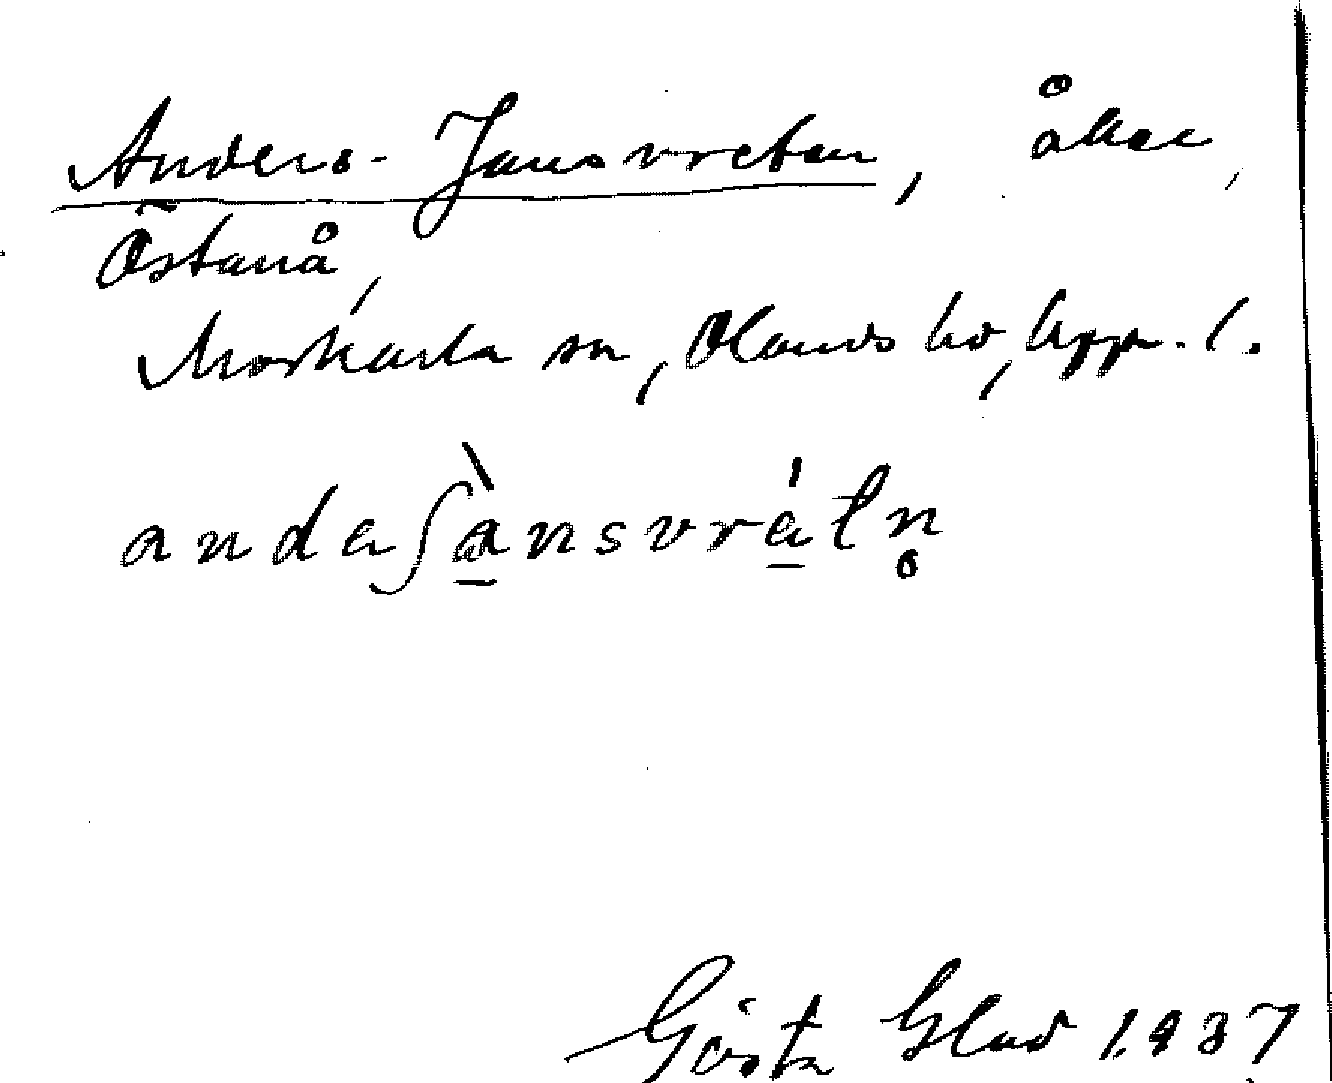 Anders-Jansvretan, åker,
Östanå,
Morkarla sn, Olands hd, Upp. l.
andaʃànsvrátn̥
Gösta Glad 1937